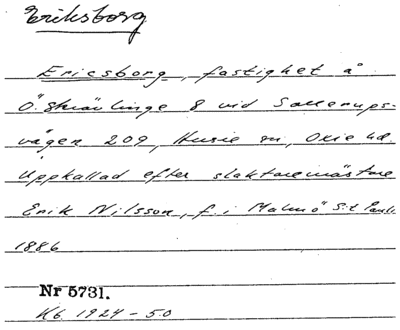 Eriksborg
Ericsborg, fastighet å
Ö. Skrävlinge 8 vid Sallerups-
vägen 209, Husie sn, Oxie hd.
Uppkallad efter slaktaremästare
Erik Nilsson, f. i Malmö S:t Pauli
1886
Nr 5731.
Kb. 1924-50